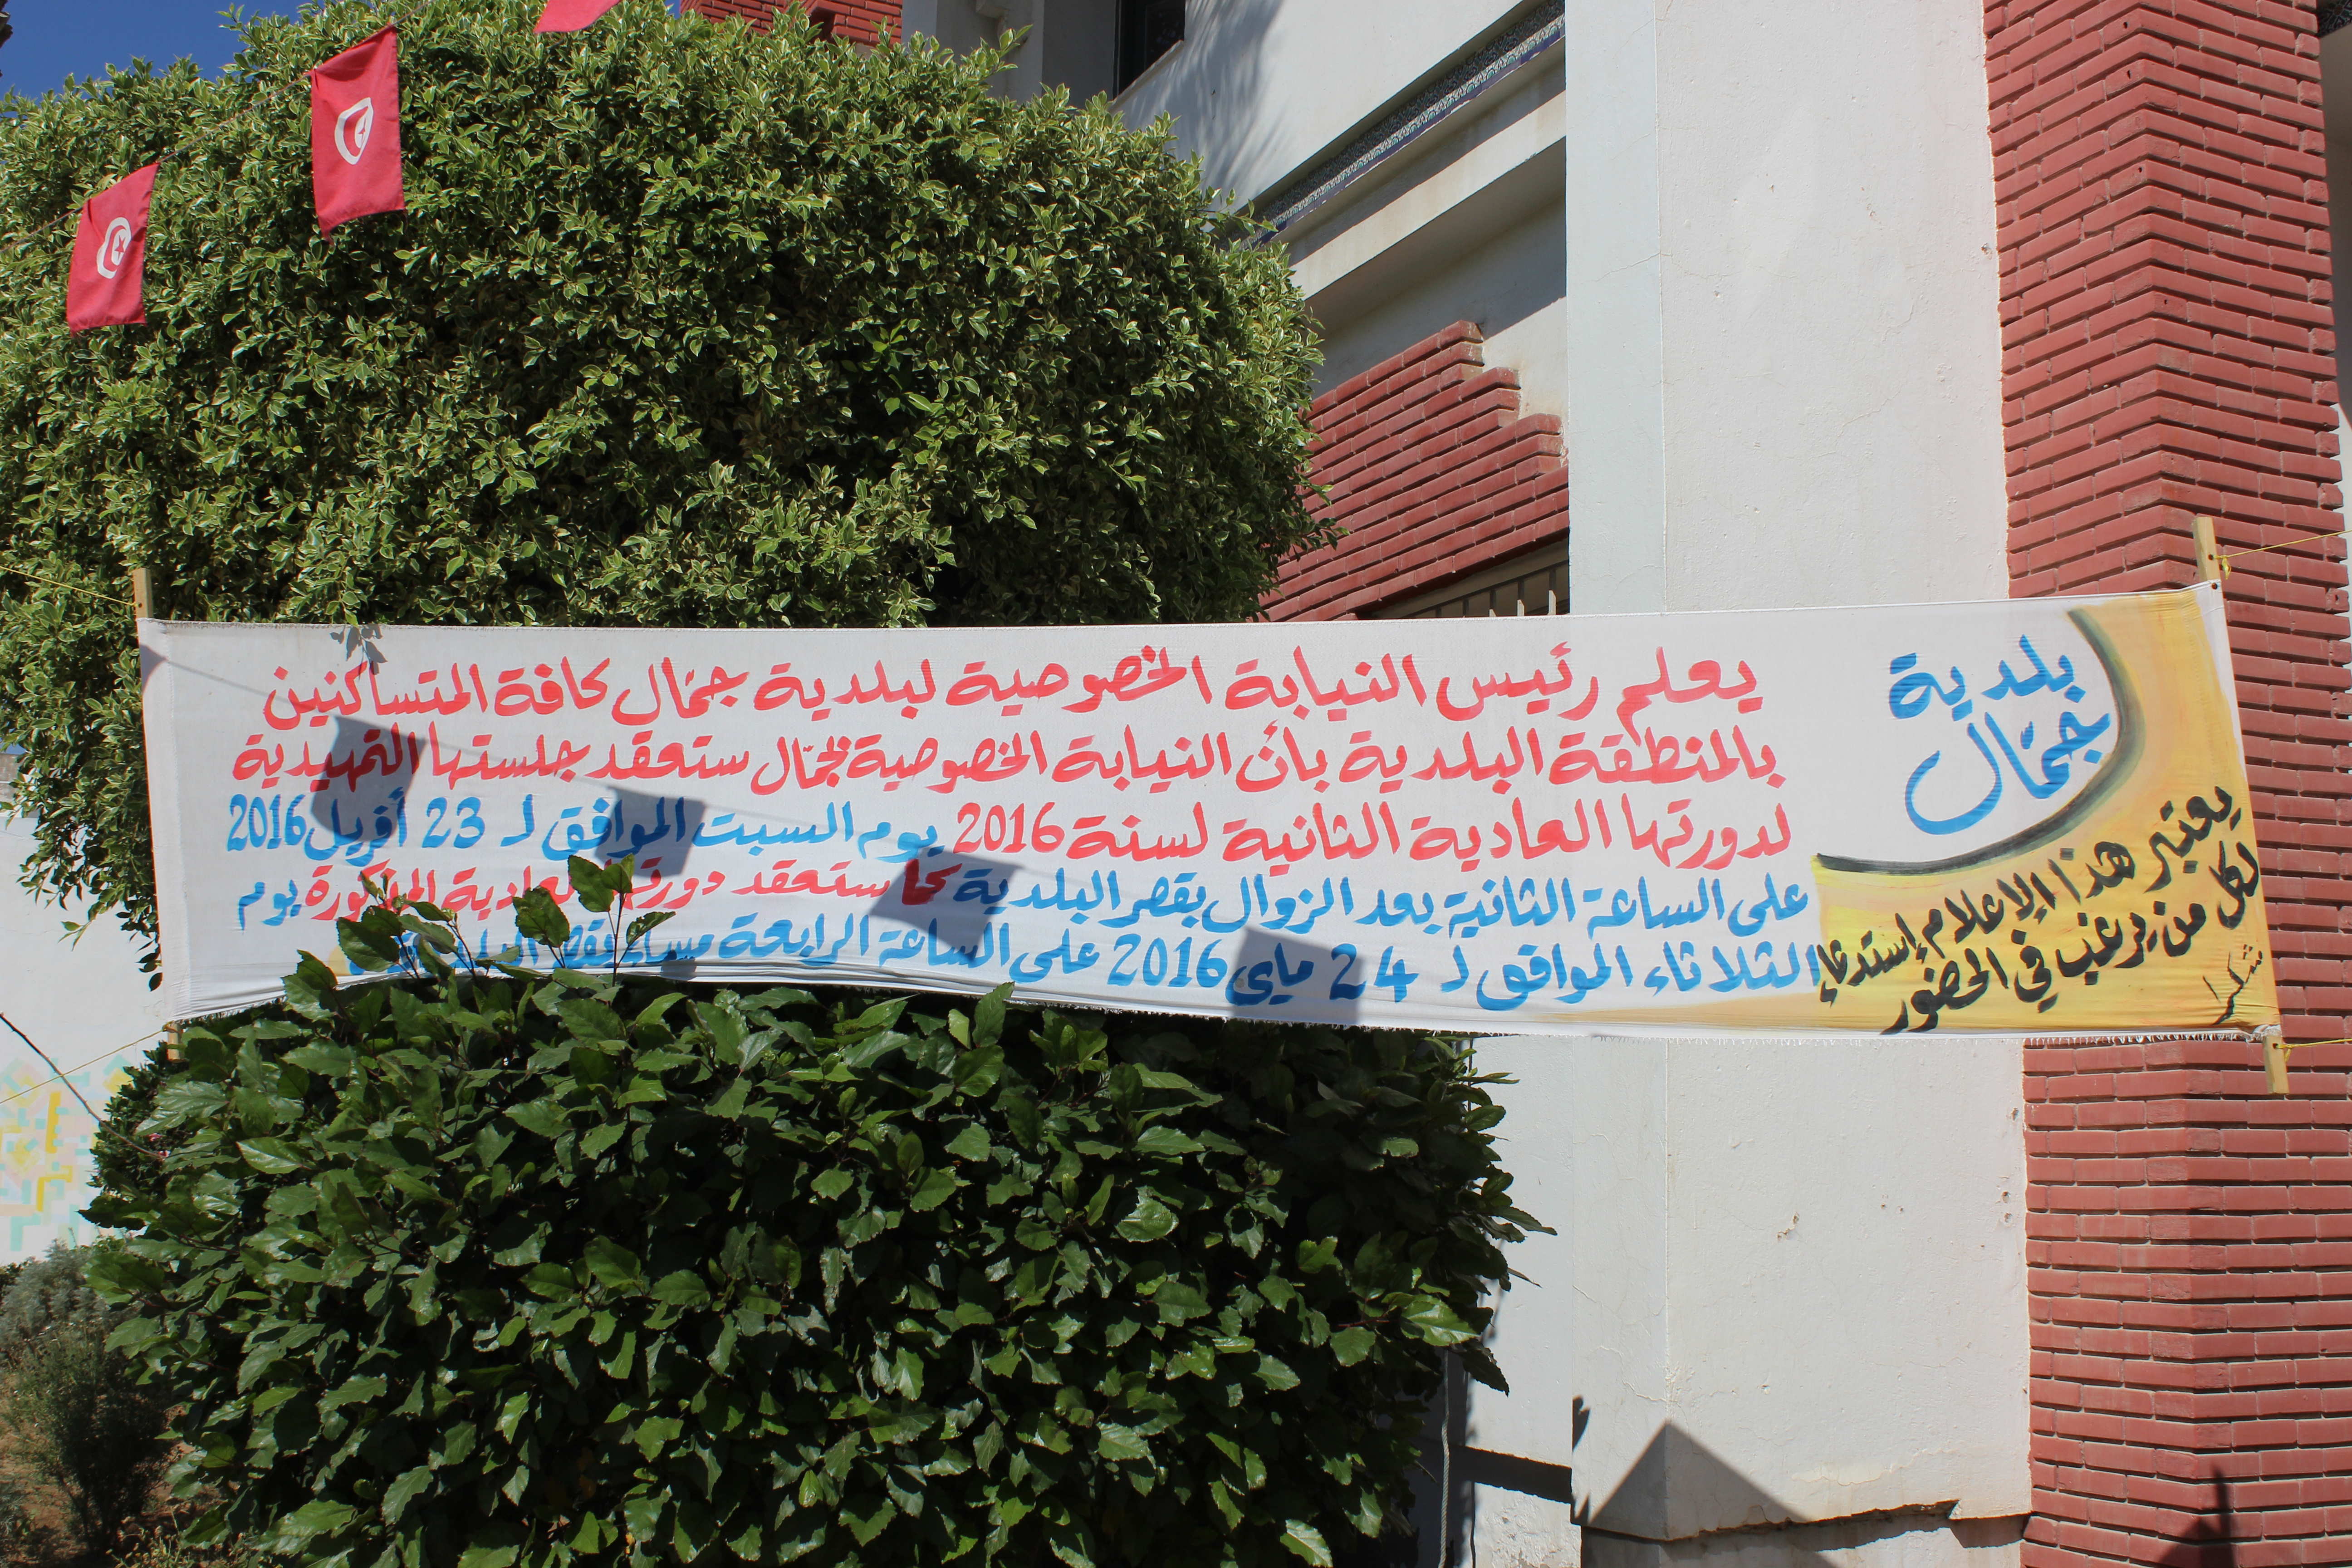 بلدية
جمّال
يعلم رئيس النيابة الخصوصية لبلدية جمّال كافة المتساكنين
بالمنطقة البلدية بأن النيابة الخصوصية لجمّال ستعقد جلستها التمهيدية
لدورتها العادية الثانية لسنة 2016 يوم السبت الموافق لـ 23 أفريل 2016
على الساعة الثانية بعد الزوال بقصر البلدية كما ستعقد دورتها العادية المذكورة يوم
الثلاثاء الموافق لـ 24 ماي 2016 على الساعة الرابعة مساء بقصر البلدية
يعتبر هذا الإعلام إستدعاء
لكل من يرغب في الحضور
شكرا